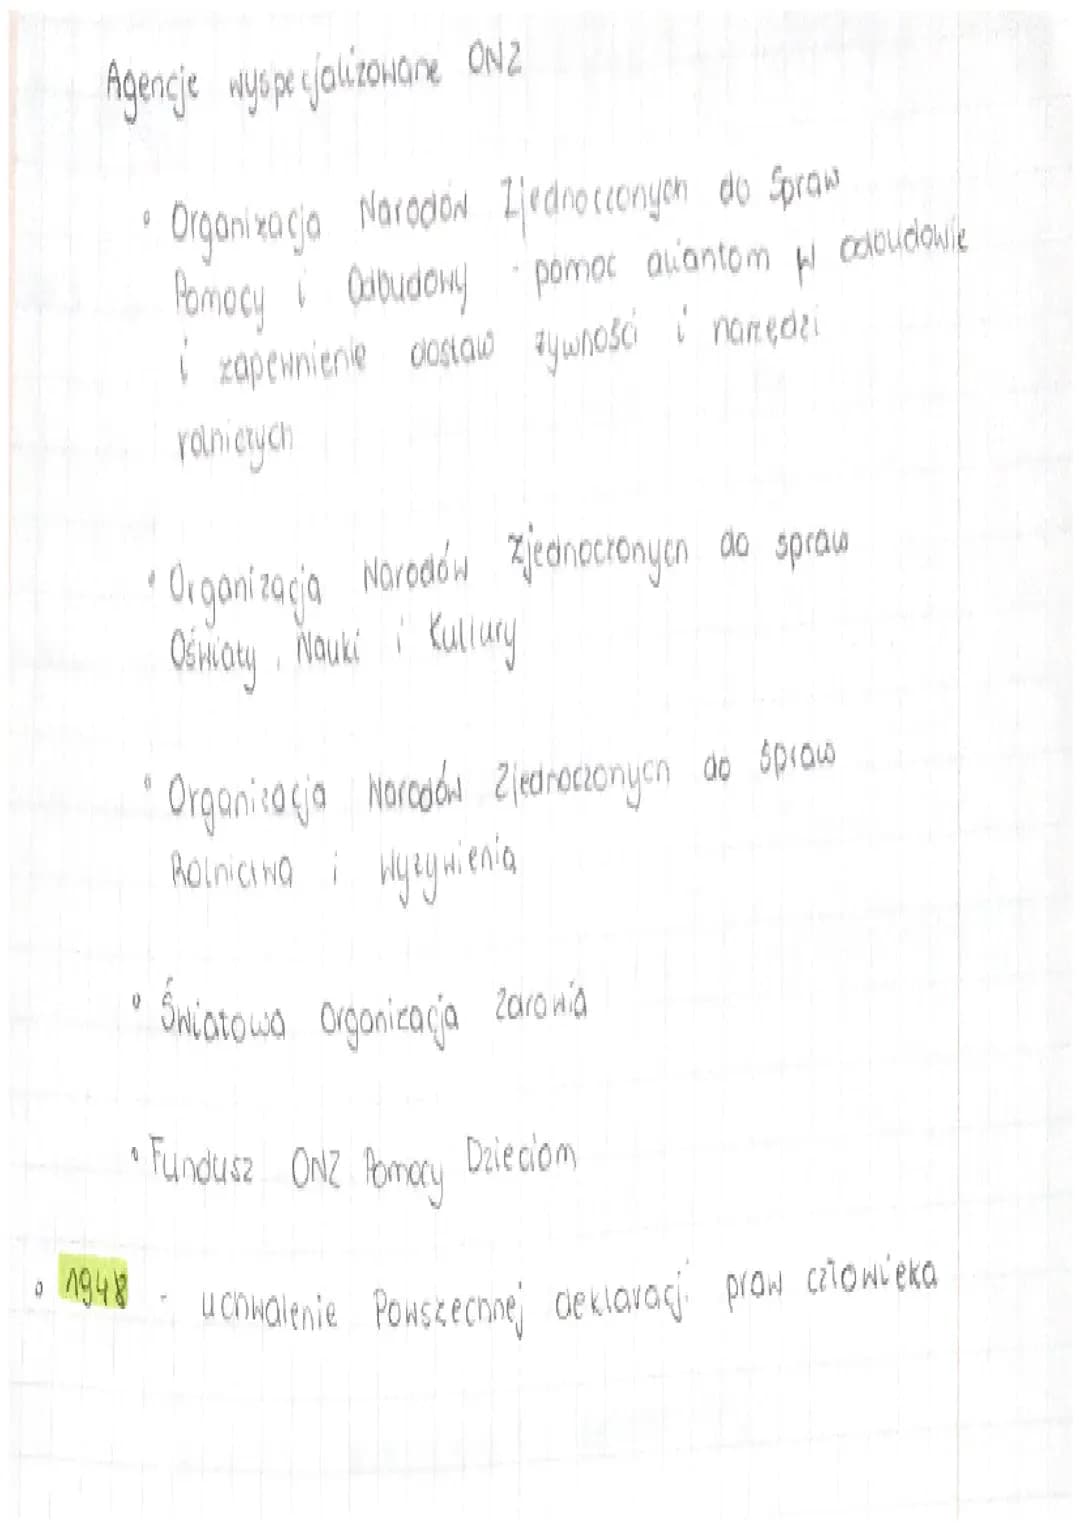 Agencje wyspecjalizowane ONZ
• Organizacja Narodów Zjednoczonych do Spraw
Pomocy i Odbudowy - pomoc aliantom w odbudowie
i zapewnienie dostaw żywności i narzędzi
rolniczych
• Organizacja Narodów Zjednoczonych do spraw
Oświaty, Nauki i Kultury
• Organizacja Narodów Zjednoczonych do spraw
Rolnictwa i Wyżywienia
• Światowa Organizacja Zdrowia
• Fundusz ONZ Pomocy Dzieciom
• 1948 - uchwalenie Powszechnej deklaracji praw człowieka